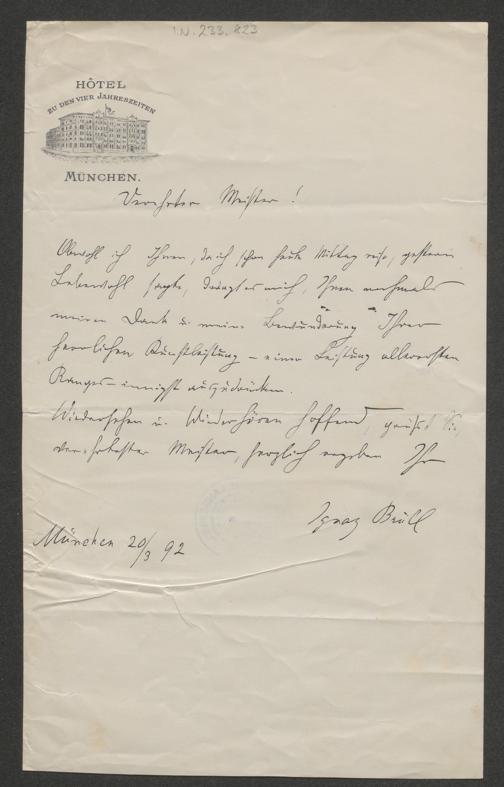 I.N. 233.823
HÔTEL
ZU DEN VIER JAHRESZEITEN
MÜNCHEN.
Verehrter Meister!
Obwohl ich Ihnen, da ich schon heute Mittag reise, gestern
Lebewohl sagte, drängt es mich, Ihnen nochmals
meinen Dank u. meine Bewunderung Ihrer
herrlichen Kunstleistung – einer Leistung allerersten
Ranges – innigst auszudrücken.
Wiedersehen u. Wiederhören hoffend, grüßt Sie,
verehrtester Meister, herzlich ergeben Ihr
Ignaz Brüll
München 20/3 92